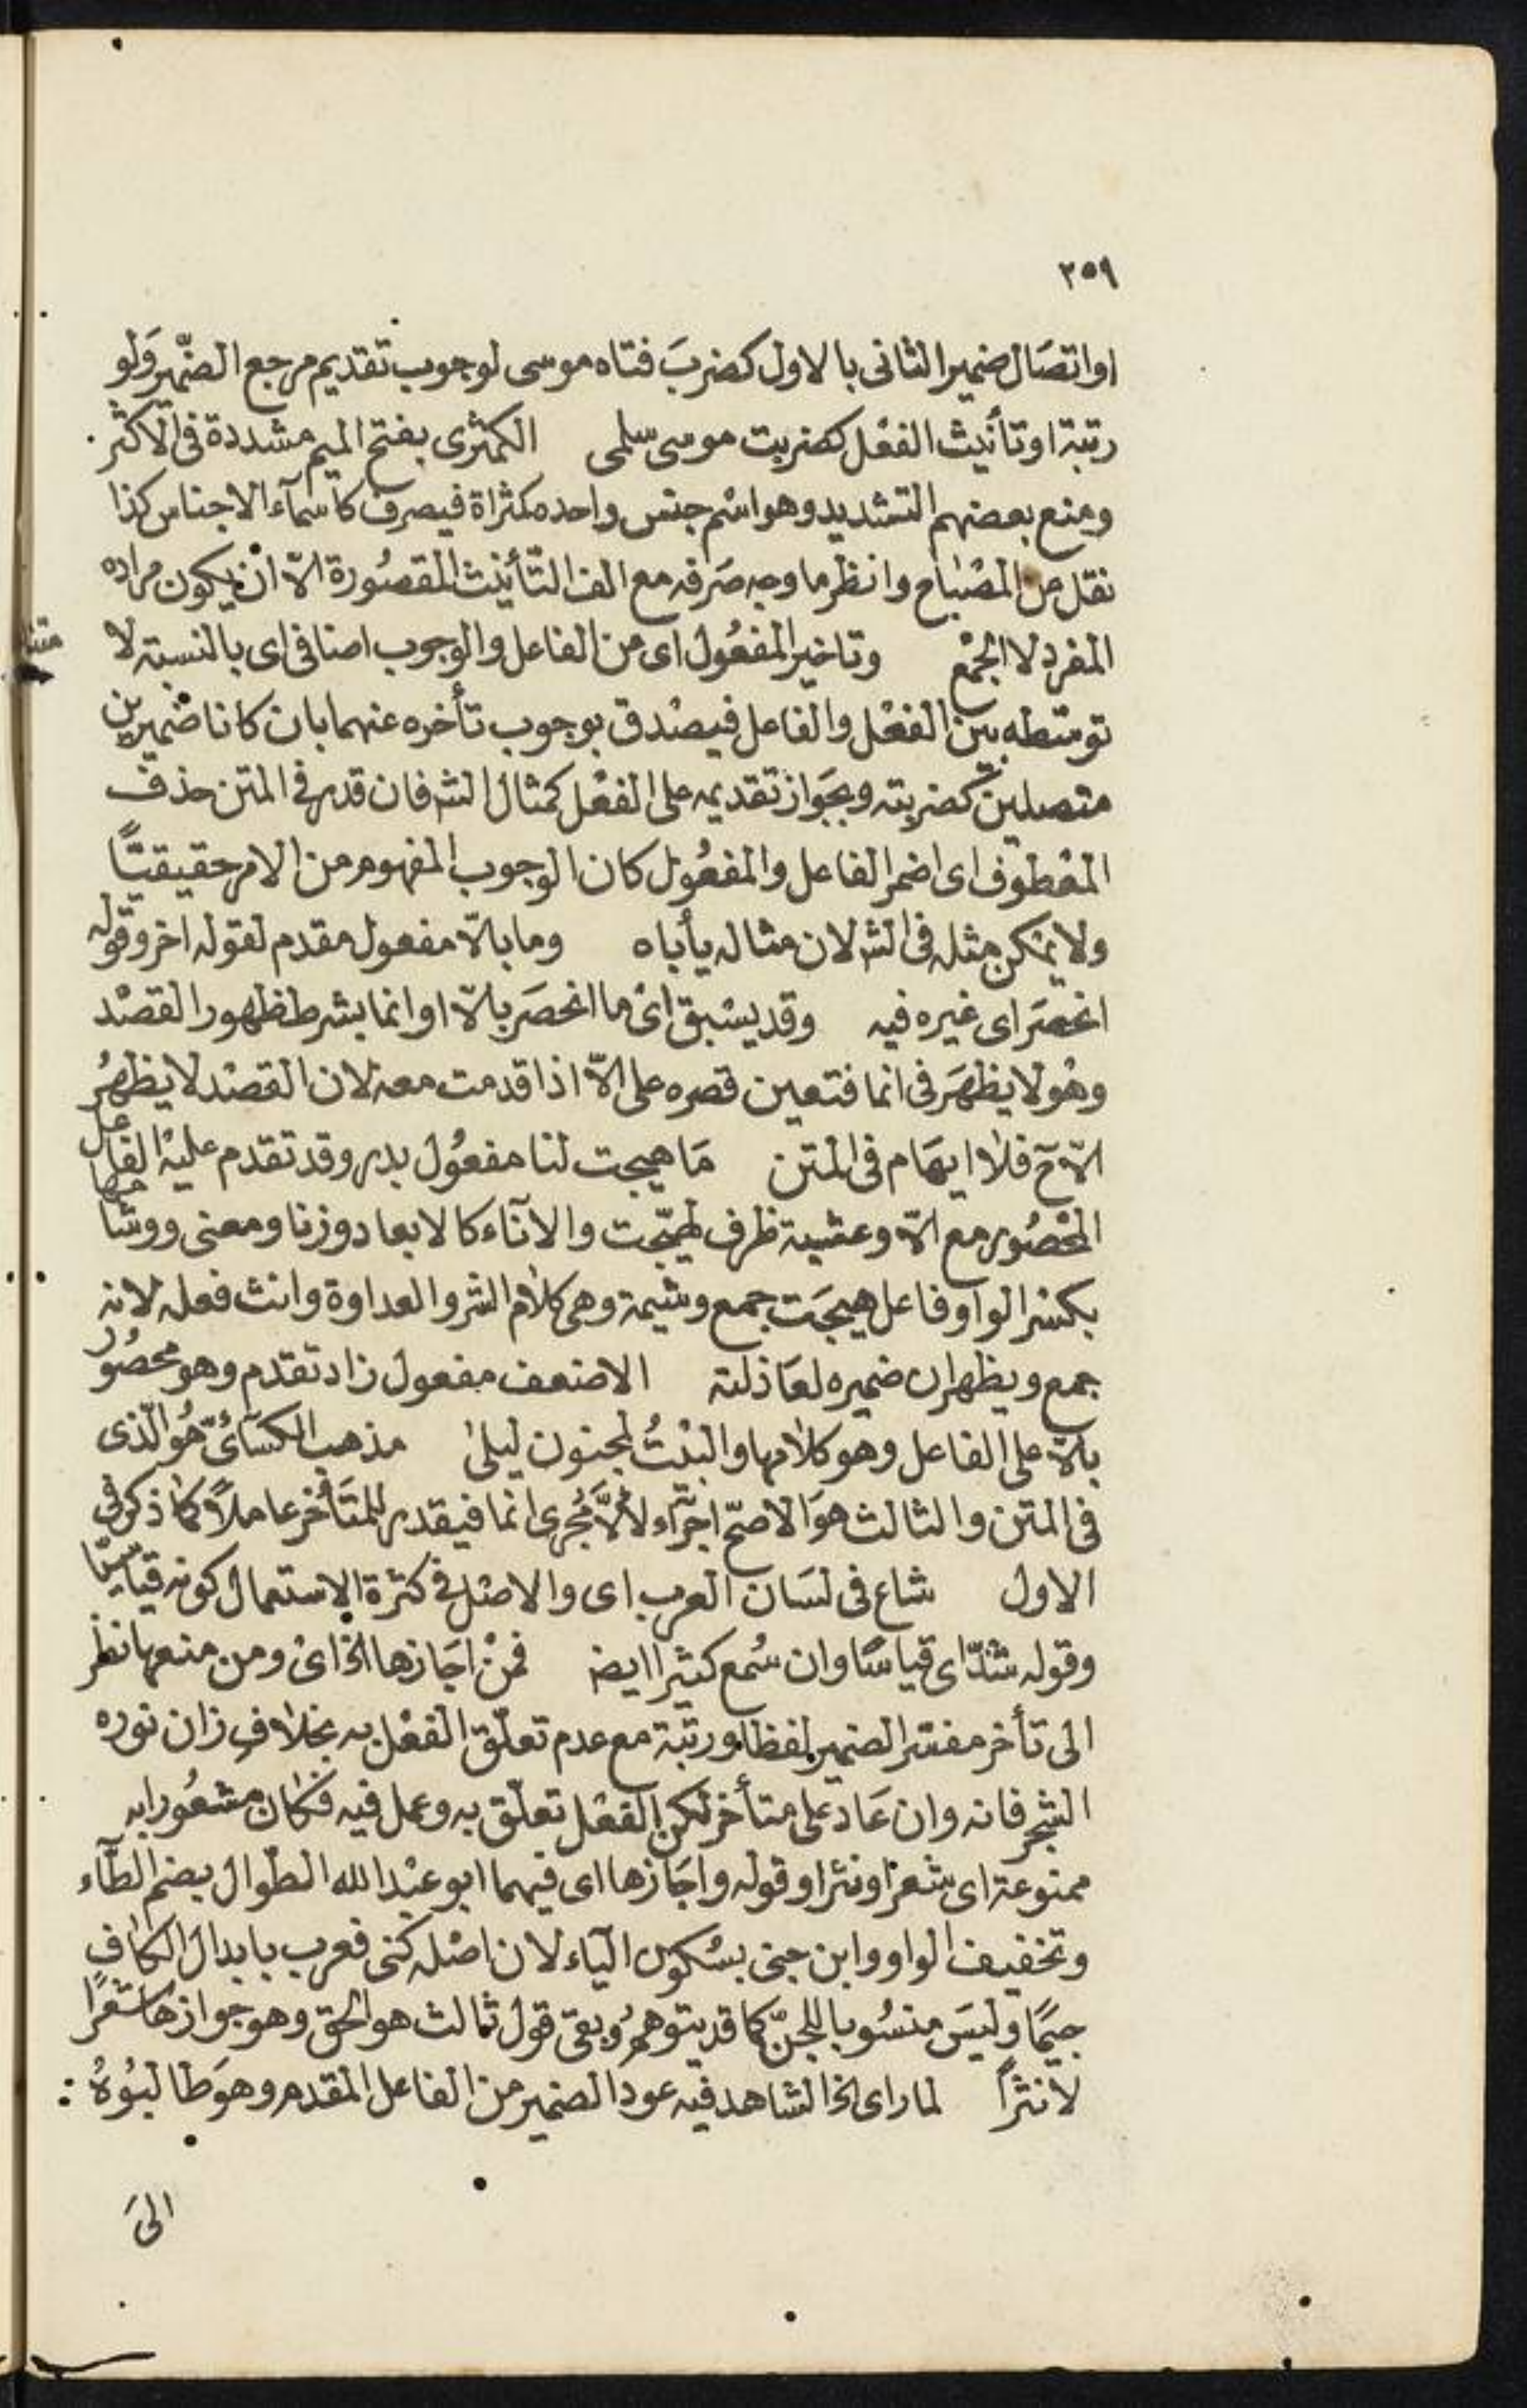 ٢٥٩
او اتصَال ضمير الثانى بالاول كضربَ فتاه موسى لوجوب تقديم مرجع الضّمير وَلو
رتبة او تأنيث الفعْل كضربت موسى سلمى الكمثرى بفتح الميم مشددة فى الاكثر
ومنع بعضهم التشديد وهو اسْم جنس واحده كمثراة فيصرف كاسمآء الاجناس كذا
نقل عن المصْباح وانظر ما وجه صَرفه مع الف التّأنيث المقصُورة الاّ انْ يكون مراده
المفرد لا الجمْع وتاخير المفعُول اى من الفاعل والوجوب اضافى اى بالنسبة لا
توسّطه بين الفعْل والفاعل فيصْدق بوجوب تأخره عنهما بان كانا ضميرين
متصلين كضربته وبجَواز تقديمه على الفعْل كمثال الشر فان قدر فى المتن حذف
المعْطوف اى اضمر الفاعل والمفعُول كان الوجوب المفهوم من الامر حقيقيًّا
ولا يمْكن مثله فى الشر لان مثاله يأباه وما بالاّ مفعول مقدم لقوله اخر وقوله
انحصَر اى غيره فيه وقد يسْبق اىْ ما انحصَر بالاّ او انما بشرط ظهور القصْد
وهُو لا يظهَر فى انما فتعين قصره على الاّ اذا قدمت معه لان القصْد لا يظهرُ
الاّ ح فلا ايهَام فى المتن مَا هيجت لنا مفعُول بدر وقد تقدم عليْه الفاعل
المحْصُور مع الاّ وعشية ظرف لهيّجت والآناء كالابعاد وزنا ومعنى ووشامها
بكسْر الواو فاعل هيجَت جمع وشيمة وهى كلام الشر والعداوة وانث فعله لانه
جمع ويظهر ان ضميره لعَاذلته الاضعف مفعول زاد تقدم وهو محصُور
بالاّ على الفاعل وهو كلامها والبيْتُ لمجنون ليلى مذهب الكسَائىّ هُو الّذى
فى المتن والثالث هوَ الاصحّ اجرَآء لألاَّ مُجرى انما فيقدر للمتَأخر عاملاً كما ذكر فى
الاول شاع فى لسَان العرب اى والاصْل فى كثرة الاستعمال كونه قياسيّا
وقوله شذّ اى قياسًا وان سُمع كثيرا ايضا فمنْ اجَازها الخ اىْ ومن منعها نظر
الى تأخر مفسّر الضمير لفظا ورتبة مع عدم تعلّق الفعْل به بخلاف زان نوره
الشجر فانه وان عَاد على متأخر لكن الفعْل تعلّق به وعمل فيه فكان مشعُورا به
ممنوعة اى شعرًا ونثرا وقوله واجَازها اى فيهما ابو عبْد الله الطوال بضم الطآء
وتخفيف الواو وابن جنى بسُكون اليَاء لان اصْله كنى فعرب بابدال الكاف
جيمًا وليسَ منسُوبا للجنّ كما قد يتوهمُ وبقى قول ثالث هو الحق وهو جوازها شعْرًا
لا نثرًا لما راى الخ الشاهد فيه عود الضمير من الفاعل المقدم وهوَ طالبُوهُ :
الىَ